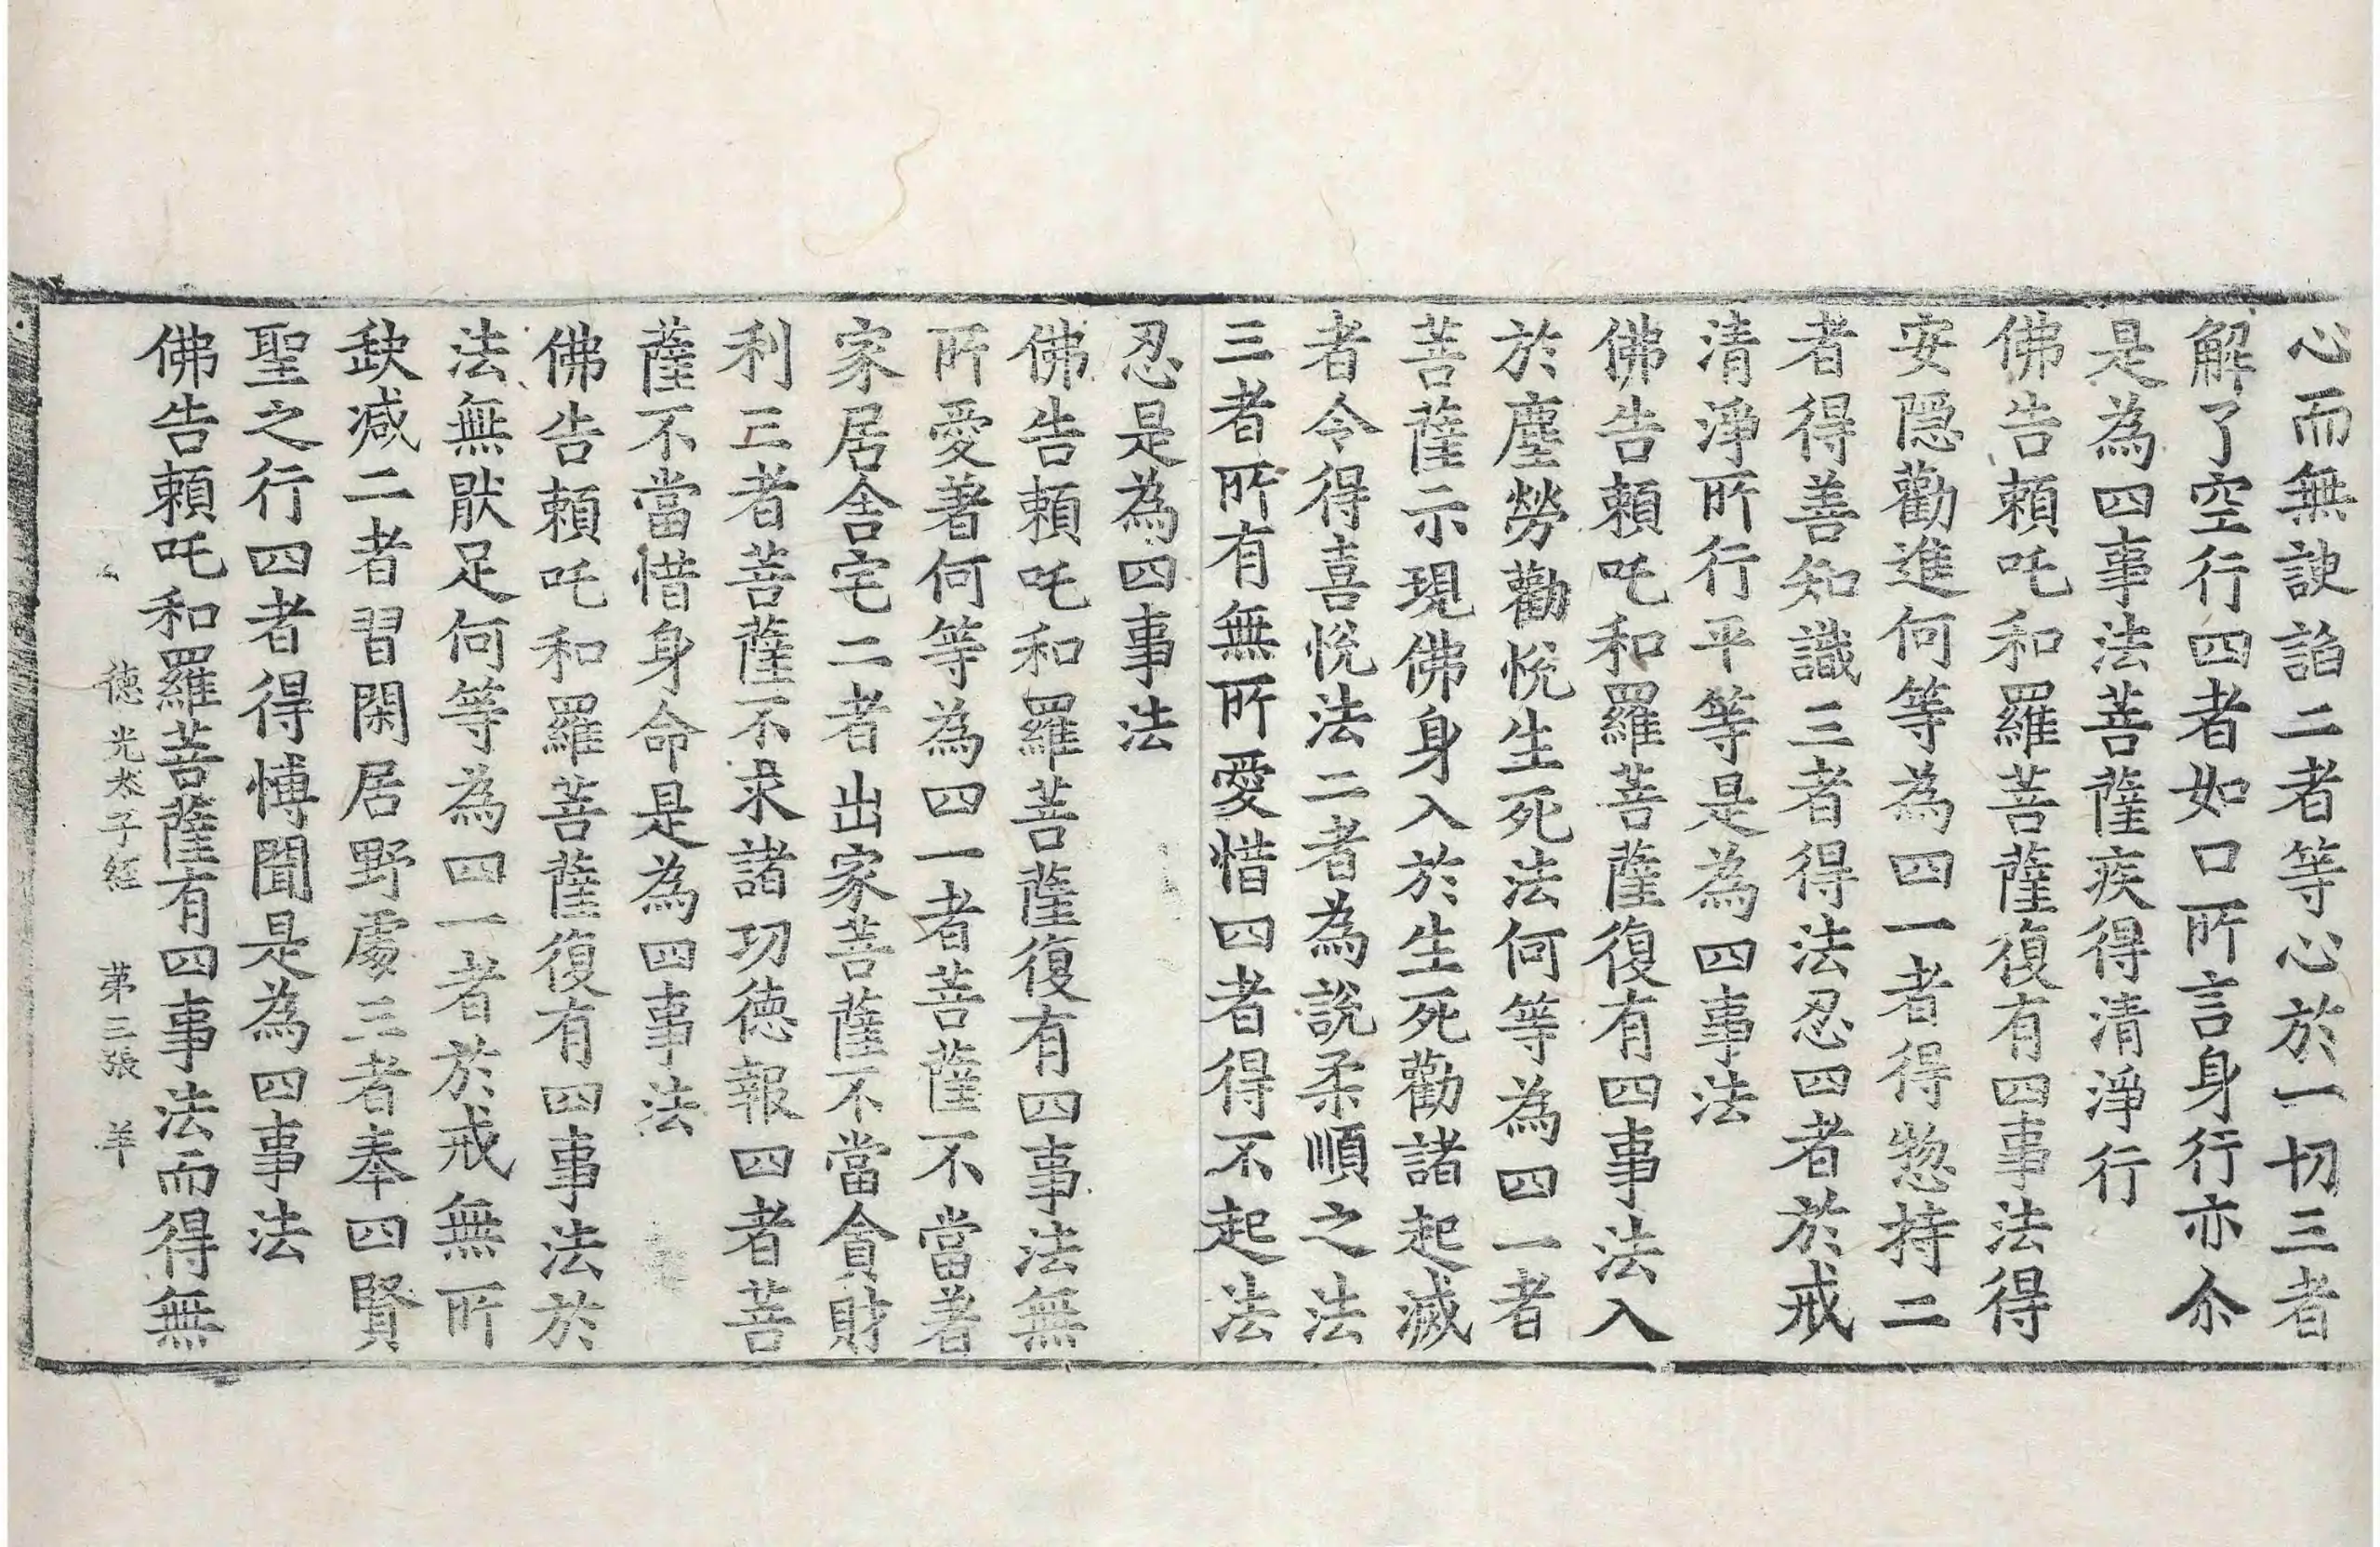 心而無諛諂二者等心於一切三者
解了空行四者如口所言身行亦尒
是為四事法菩薩疾得清淨行
佛告賴吒和羅菩薩復有四事法得
安隱勸進何等為四一者得惣持二
者得善知識三者得法忍四者於戒
清淨所行平等是為四事法
佛告賴吒和羅菩薩復有四事法入
於塵勞勸悅生死法何等為四一者
菩薩示現佛身入於生死勸諸起滅
者令得喜悅法二者為說柔順之法
三者所有無所愛惜四者得不起法
忍是為四事法
佛告賴吒和羅菩薩復有四事法無
所愛著何等為四一者菩薩不當著
家居舍宅二者出家菩薩不當貪財
利三者菩薩不求諸功德報四者菩
薩不當惜身命是為四事法
佛告賴吒和羅菩薩復有四事法於
法無猒足何等為四一者於戒無所
缺減二者習閑居野處三者奉四賢
聖之行四者得博聞是為四事法
佛告賴吒和羅菩薩有四事法而得無
德光太子經 第三張 羊